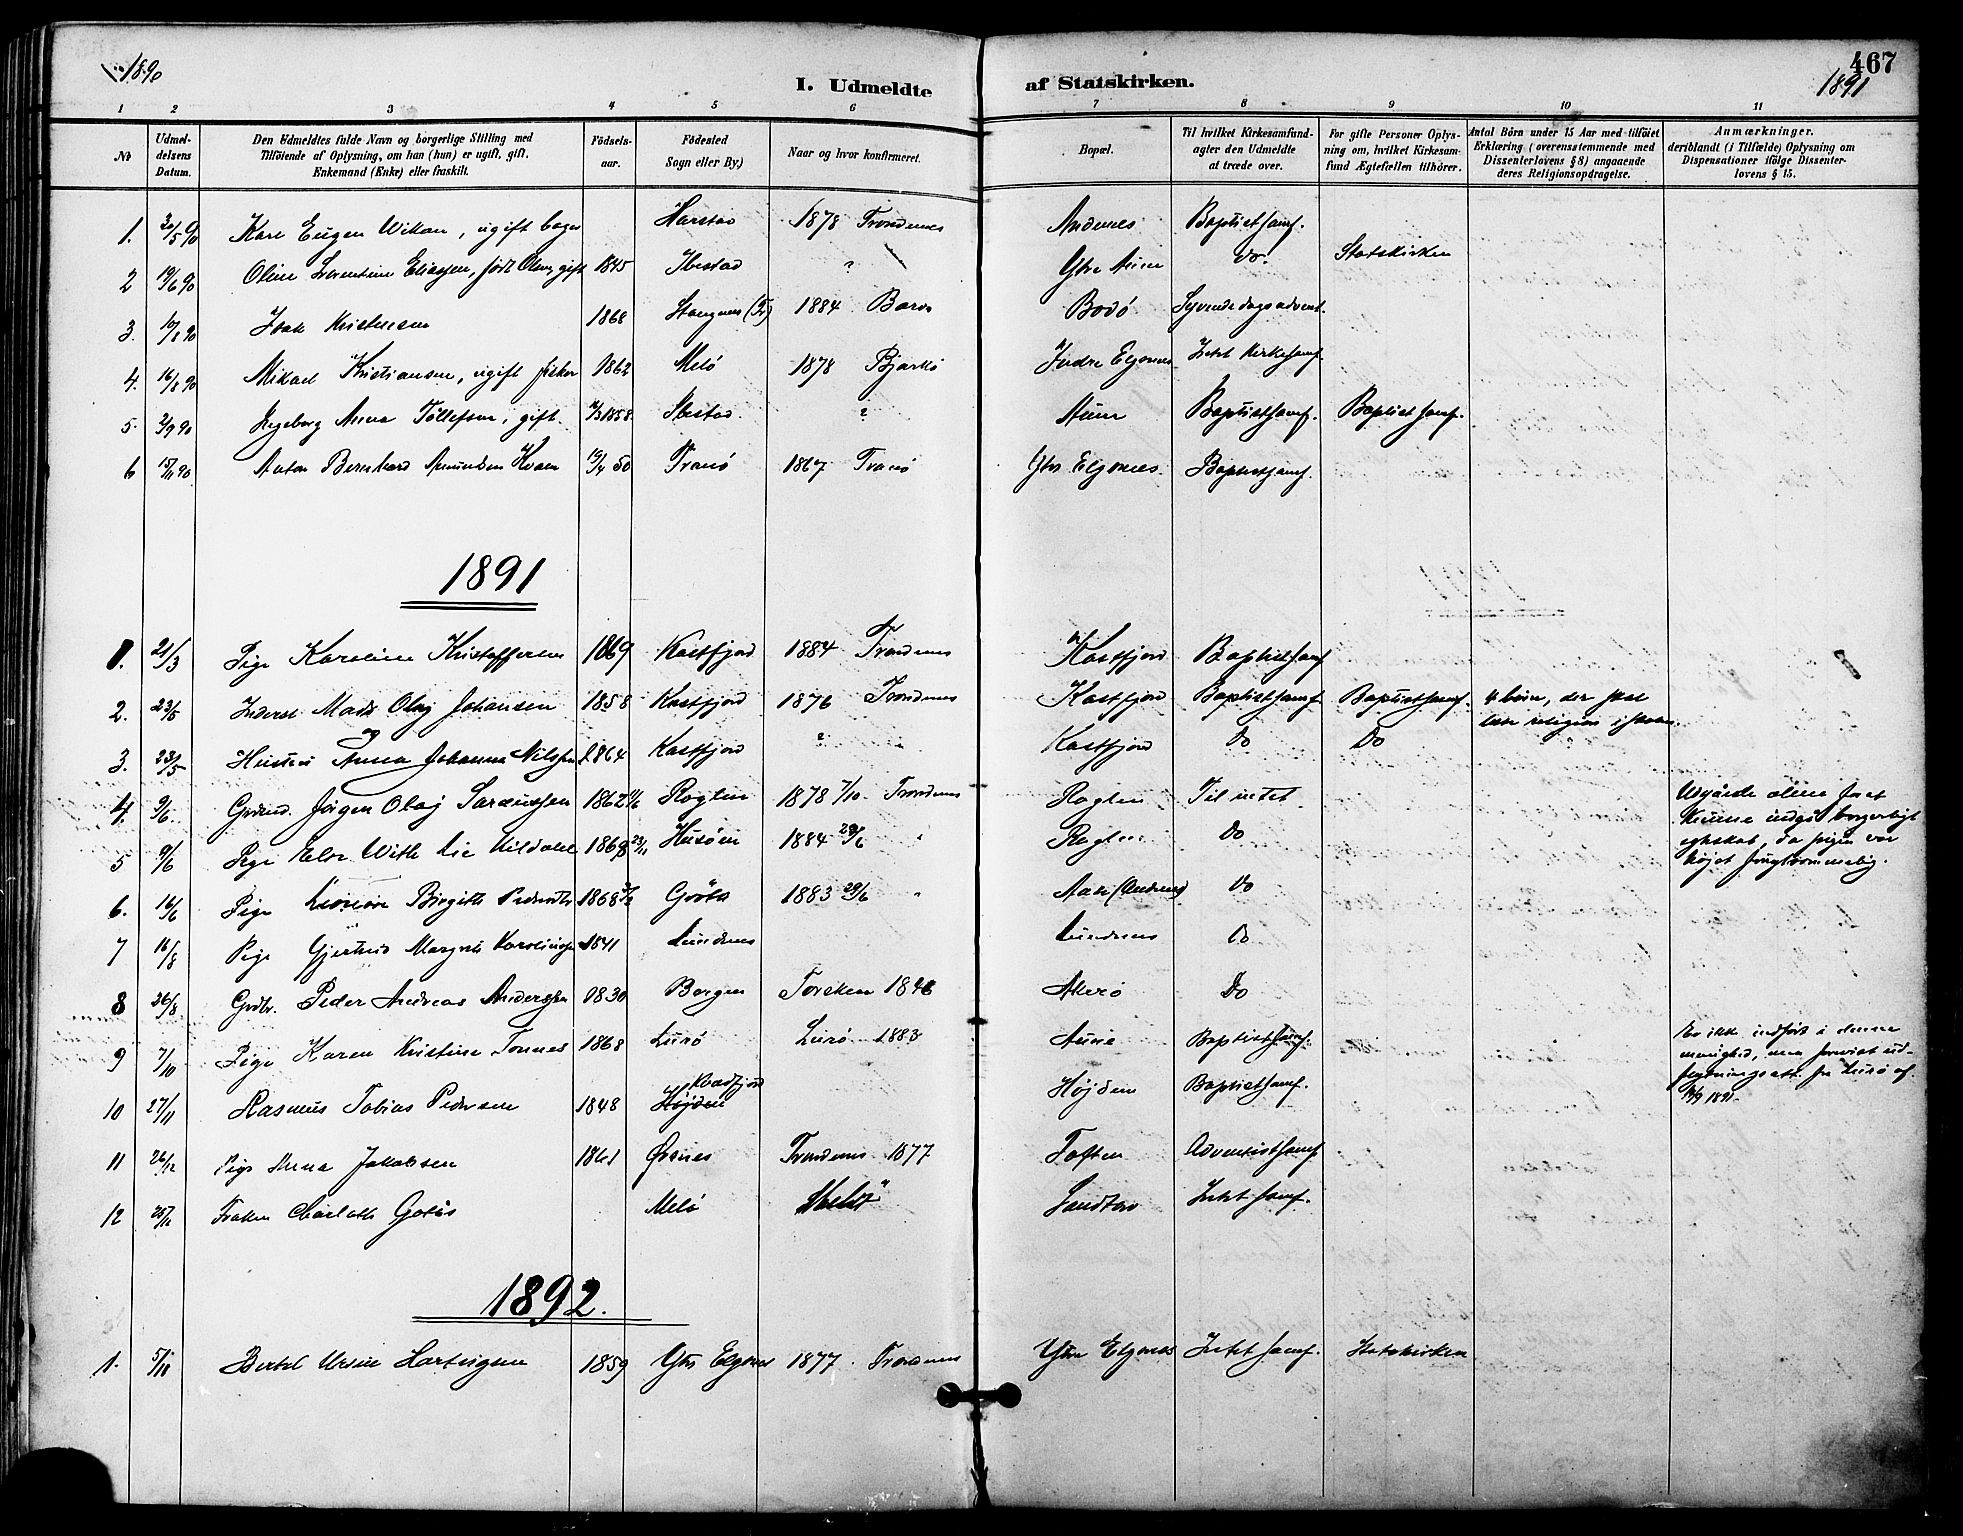 1890
I. Udmeldte af Statskirken.
467
1891
1 2 3 4 5 6 7 8 9 10 11
No
Udmeldelsens Datum.
Den Udmeldtes fulde Navn og borgerlige Stilling med Tilföiende af Oplysning, om han (hun) er ugift, gift. Enkemand (Enke) eller fraskilt.
Födselsaar.
Födested Sogn eller By.)
Naar og hvor konfirmeret.
Bopæl.
Til hvilket Kirkesamfund agter den Udmeldte at træde over.
For gifte Personer Oplysning om, hvilket Kirkesamfund Ægtefællen tilhörer.
Antal Börn under 15 Aar med tilföiet Erklæring (overensstemmende med Dissenterlovens § 8) angaaende deres Religionsopdragelse.
Anmærkninger. deriblandt (i Tilfælde) Oplysning om Dispensationer ifölge Dissenterlovens § 15.
1. 20/5 90 Karl Eugen Wikan, ugift bager Harstad 1878 Trondenes Andenes Baptistsamf.
2 19/6 90 Oline Lorentine Eliassen, født Olsen, gift 1845 Ibestad ? Ytre Aun Do. Statskirken
3. 19/8 90 Isak Kristensen 1868 Stangnes (Tr) 1884 Bodö Syvendedagsadvent.
4. 16/8 90 Mikael Kristiansen, ugift fisker 1862 Melö 1878 Bjarkö Indre Elgsnes Intet Kirkesamf.
5. 2/9 90 Ingeborg Anna Tollefsen, gift 1858 Ibestad ? Aune Baptistsamf. Baptistsamf.
6 15/11 90 Anton Bernhard Amundsen Kvæn 19/4 50 Tranö 1867 Tranö Ytre Elgsnes Baptistsamf.
1891
1. 21/3 Pige Karoline Kristoffersen 1869 Kastfjord 1884 Trondenes Kastfjord Baptistsamf
2. 23/5 Inderst Mads Olaj Johansen 1858 Kastfjord 1876 Trondenes Kastfjord Baptistsamf Baptistsamf. 4 börn, der skal læse religion i skolen
og
3. 23/5 Hustru Anna Johanna Nilssen 1864 Kastfjord ? Kastfjord Do Do
4. 9/6 Grdmd. Jörgen Olaj Sørensen 1862 Roglen 1878 7/10 Trondenes Roglen Til intet Udgåede alene for at kunne indgå borgerligt egteskab, da pigen var
5 9/6 Pige 1868 23/11 Husöen 1884 29/6 " Roglen Do
6. 16/6 Pige Birgitte 1868 Gröts 1883 29/6 " (Andenes) Do
7 16/8 Pige Gjertrud Margrete 1841 Lundenes Lundenes Do
8 26/8 Grdbr. Peder Andreas Anderssen 1830 Borgen Torsken 1846 Akerö Do
9 7/10 Pige Karen Kristine Tonnes 1868 Lurö Lurö 1883 Aune Baptistsamf. Er ikke indført i denne menighed, men forevist udflytningsatt. fra Lurö af 19/9 1891.
10 27/11 Rasmus Tobias Pedersen 1848 Kvædfjord Höjden Höjden Baptistsamf.
11 26/12 Pige Anna Jakobsen 1861 Øknes Trondenes 1877 Toften Adventistsamf
12 Frøken Charlotte Gotås Melö Sandtorv Intet samf.
1892.
1. 5/10 Bertel Ursin Hartvigsen 1859 Ytre Elgsnes 1877 Trondenes Ytre Elgsnes Intet samf. Statskirken